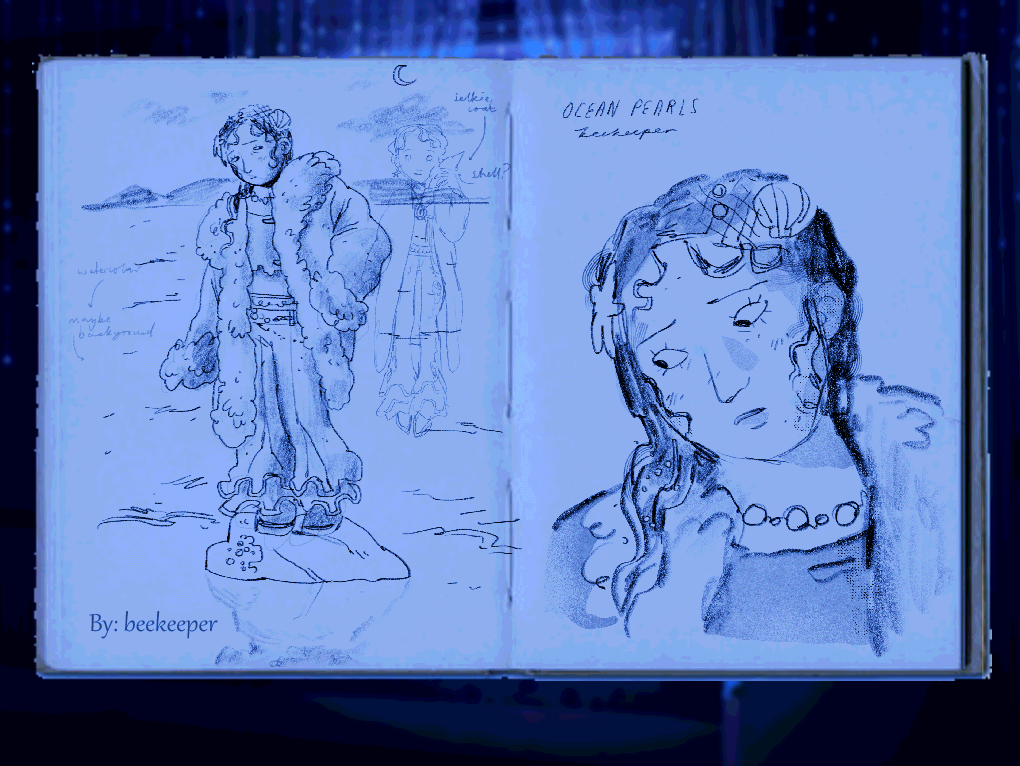 selkie
coat
shell?
watercolor
maybe
background
By: beekeeper
OCEAN PEARLS
beekeeper